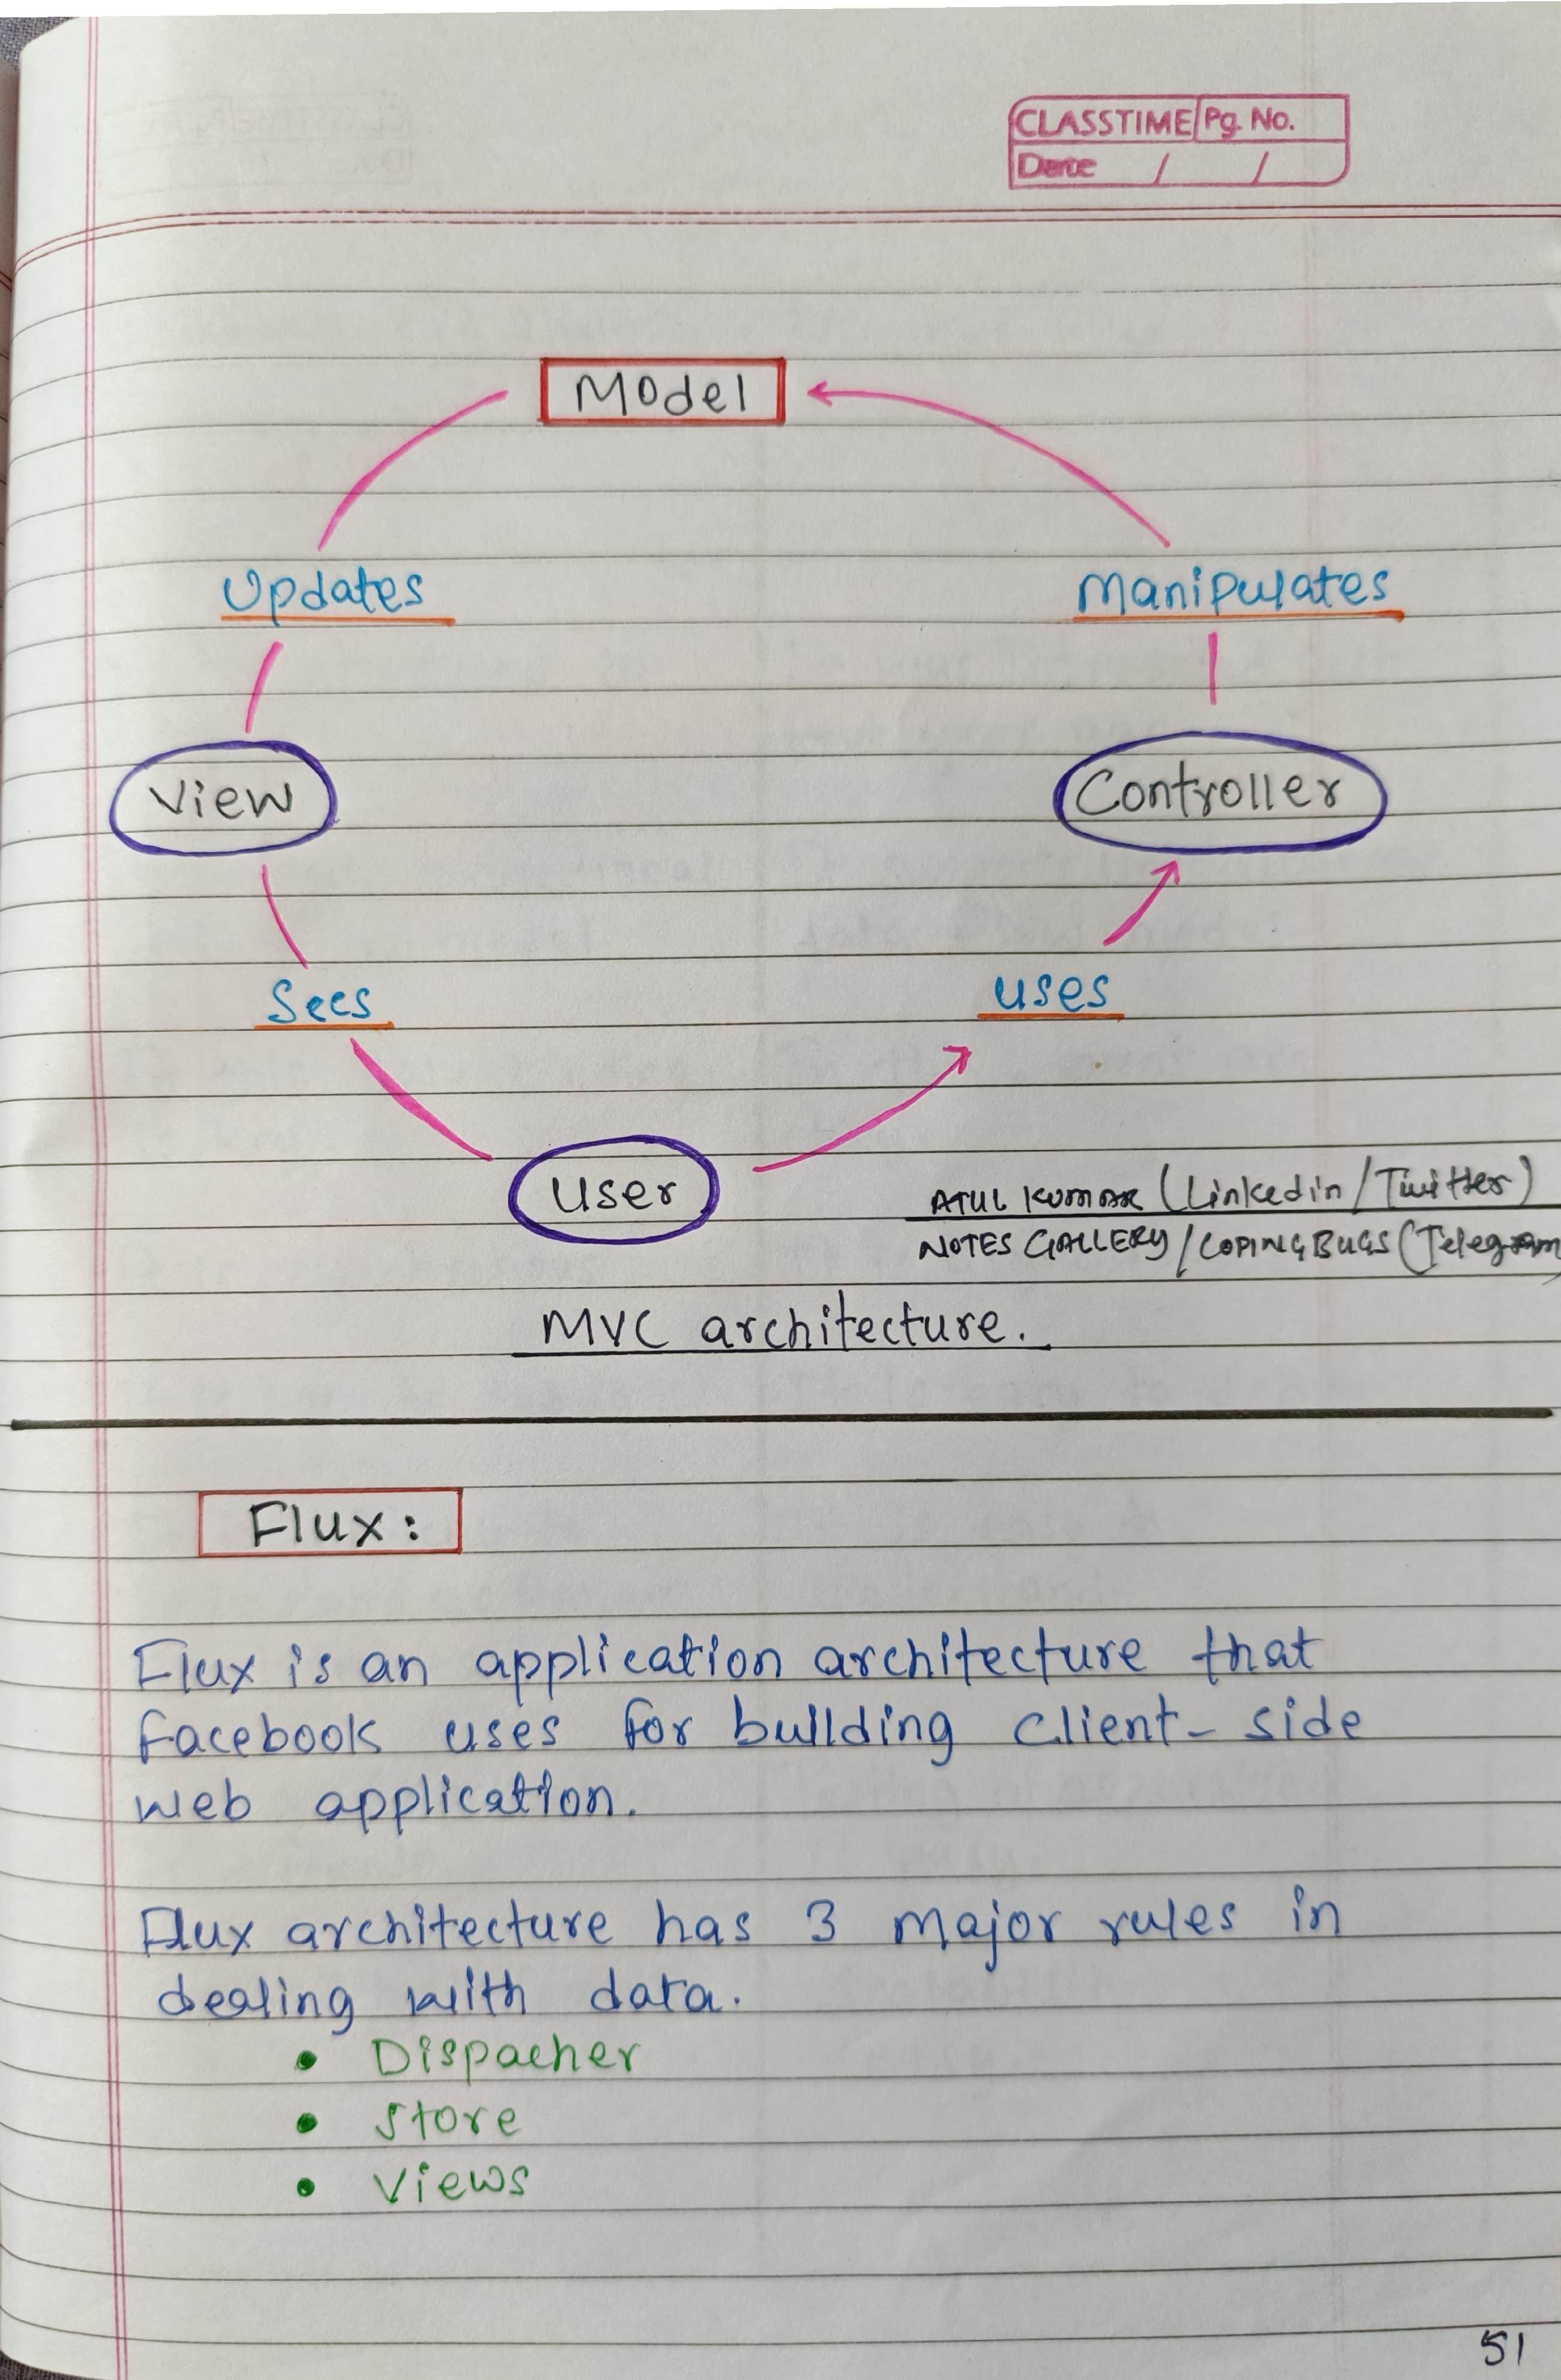 CLASSTIME Pg. No.
Date / /
Model
Updates
Manipulates
View
Controller
Sees
uses
User
ATUL KUMAR (Linkedin/Twitter)
NOTES GALLERY/COPINGBUGS (Telegram)
MVC architecture.
Flux:
Flux is an application architecture that
facebook uses for building client-side
web application.
Flux architecture has 3 major rules in
dealing with data.
• Dispacher
• Store
• Views
51